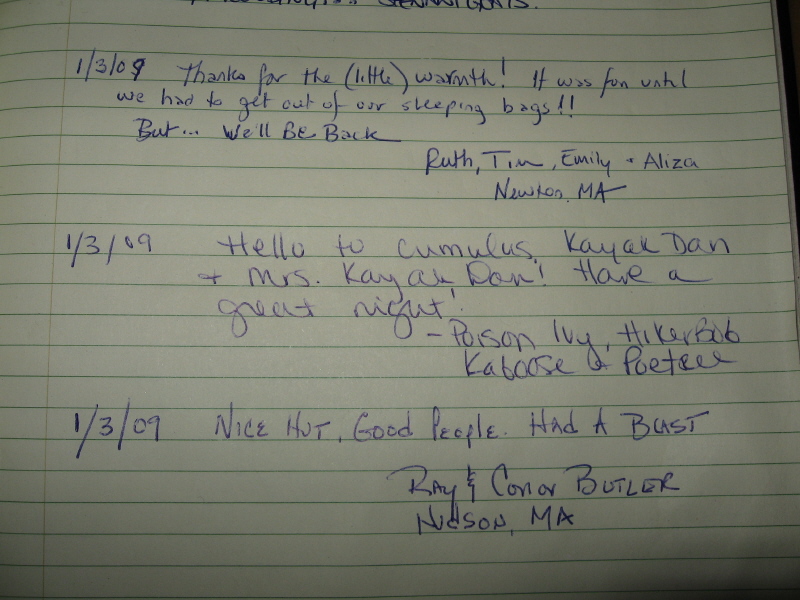 SHENANIGANS.
1/3/09 Thanks for the (little) warmth! It was fun until
we had to get out of our sleeping bags!!
But... We'll Be Back
Ruth, Tim, Emily + Aliza
Newton, MA
1/3/09 Hello to cumulus, Kayak Dan
+ Mrs. Kayak Dan! Have a
great night!
- Poison Ivy, HikerBob
Kaboose & Poetree
1/3/09 NICE HUT, GOOD PEOPLE. HAD A BLAST
RAY & Conor BUTLER
HUDSON, MA